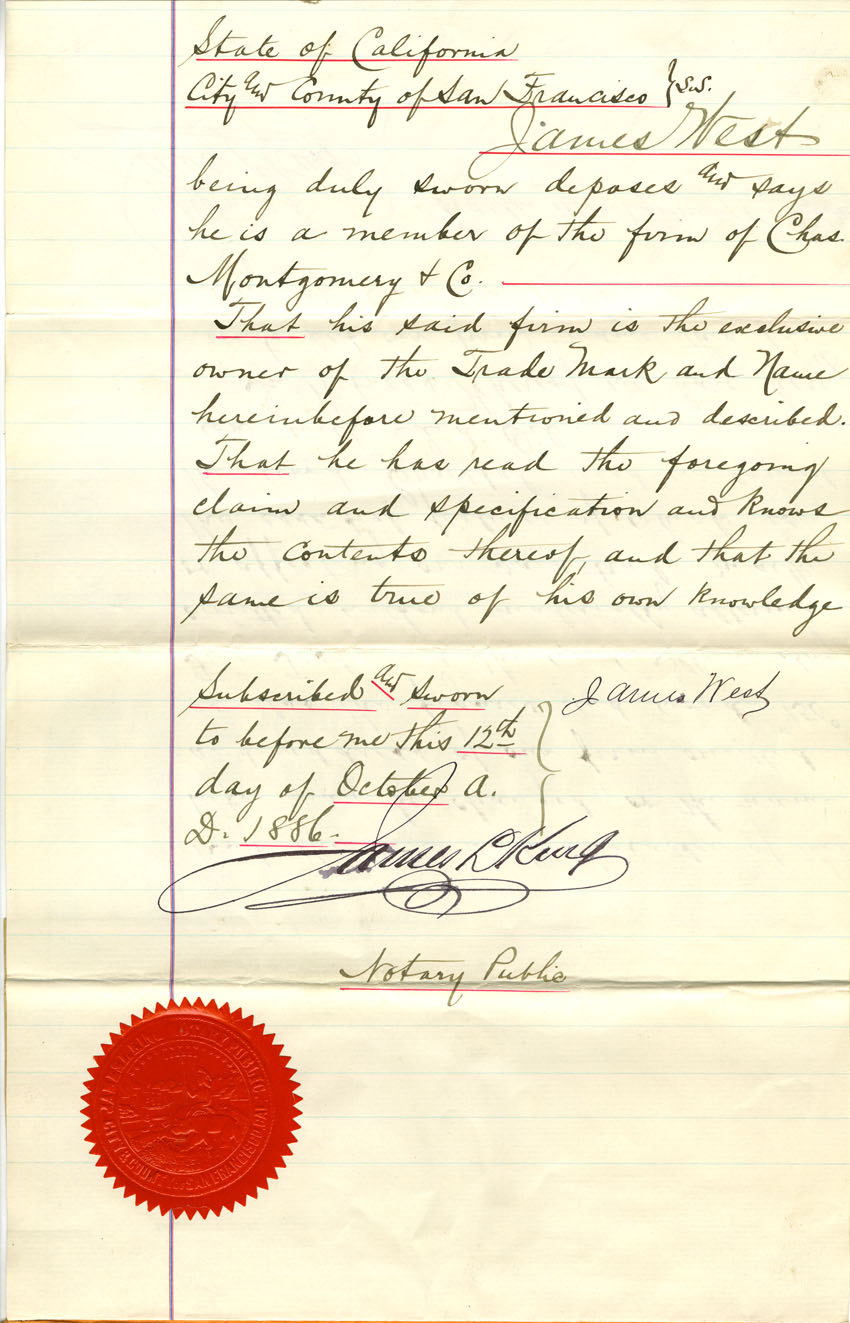 State of California
City and County of San Francisco } S.S.
James West
being duly sworn deposes and says
he is a member of the firm of Chas.
Montgomery & Co.
That his said firm is the exclusive
owner of the Trade Mark and Name
hereinbefore mentioned and described.
That he has read the foregoing
claim and specification and knows
the contents thereof, and that the
same is true of his own knowledge
James West
Subscribed and sworn
to before me this 12th
day of October A.
D. 1886.
James L King
Notary Public
JAMES L. KING NOTARY PUBLIC
CITY & COUNTY OF SAN FRANCISCO, CAL.